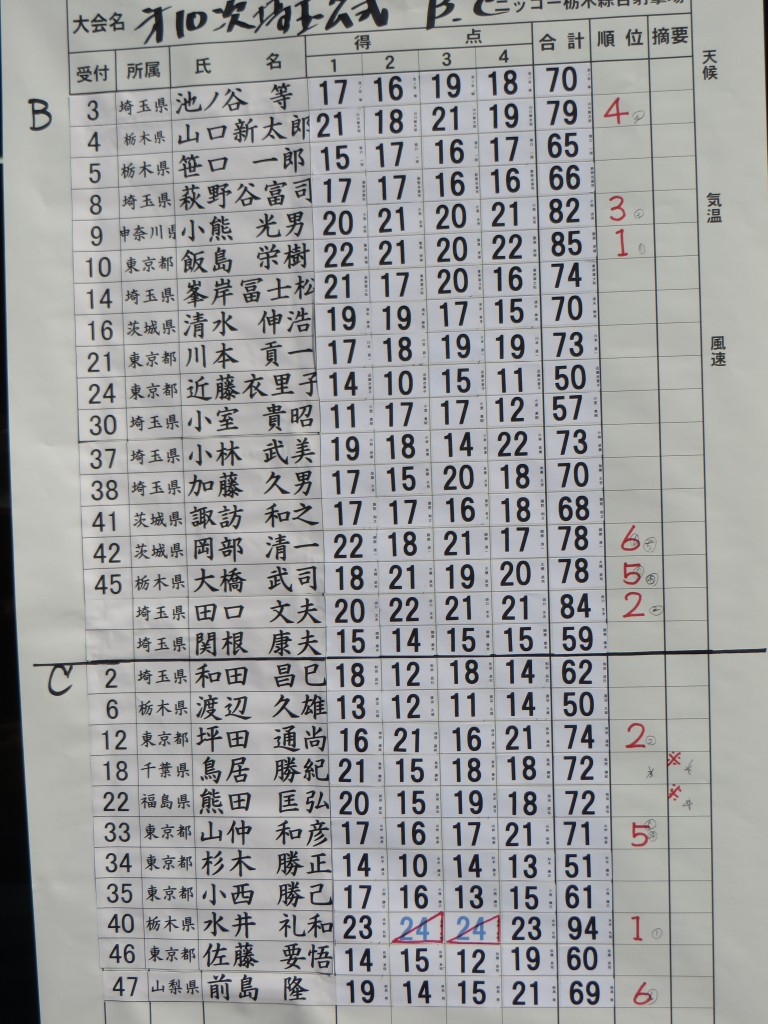 大会名 才10次埼玉公式 B.C ニッコー栃木綜合射撃場
受付 所属 氏 名 得 点 合計 順位 摘要
1 2 3 4
天候
気温
風速
B
3 埼玉県 池ノ谷 等 17 16 19 18 70
4 栃木県 山口新太郎 21 18 21 19 79 4
5 栃木県 笹口 一郎 15 17 16 17 65
8 埼玉県 萩野谷富司 17 17 16 16 66
9 神奈川県 小熊 光男 20 21 20 21 82 3
10 東京都 飯島 栄樹 22 21 20 22 85 1
14 埼玉県 峯岸冨士松 21 17 20 16 74
16 茨城県 清水 伸浩 19 19 17 15 70
21 東京都 川本 貢一 17 18 19 19 73
24 東京都 近藤衣里子 14 10 15 11 50
30 埼玉県 小室 貴昭 11 17 17 12 57
37 埼玉県 小林 武美 19 18 14 22 73
38 埼玉県 加藤 久男 17 15 20 18 70
41 茨城県 諏訪 和之 17 17 16 18 68
42 茨城県 岡部 清一 22 18 21 17 78 6
45 栃木県 大橋 武司 18 21 19 20 78 5
埼玉県 田口 文夫 20 22 21 21 84 2
埼玉県 関根 康夫 15 14 15 15 59
C
2 埼玉県 和田 昌巳 18 12 18 14 62
6 栃木県 渡辺 久雄 13 12 11 14 50
12 東京都 坪田 通尚 16 21 16 21 74 2
18 千葉県 鳥居 勝紀 21 15 18 18 72 ※
22 福島県 熊田 匡弘 20 15 19 18 72 ※
33 東京都 山仲 和彦 17 16 17 21 71 5
34 東京都 杉木 勝正 14 10 14 13 51
35 東京都 小西 勝己 17 16 13 15 61
40 栃木県 水井 礼和 23 24 24 23 94 1
46 東京都 佐藤 要悟 14 15 12 19 60
47 山梨県 前島 隆 19 14 15 21 69 6